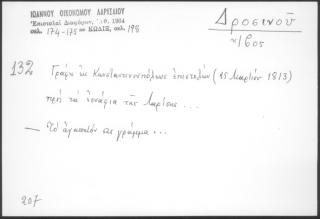 ΙΩΑΝΝΟΥ ΟΙΚΟΝΟΜΟΥ ΛΑΡΙΣΑΙΟΥ
Ἐπιστολαὶ Διαφόρων, 1964
σελ. 174-175 — ΚΩΔΙΞ, σελ. 198
Δροσινοῦ
132
Γράφει ἐκ Κωνσταντινουπόλεως ἐπιστολὴν (15 Μαρτίου 1813)
πρὸς τὰ ἰσνάφια τῆς Λαρίσης ...
— Τὸ ἀγαπητόν σας γράμμα ...
207